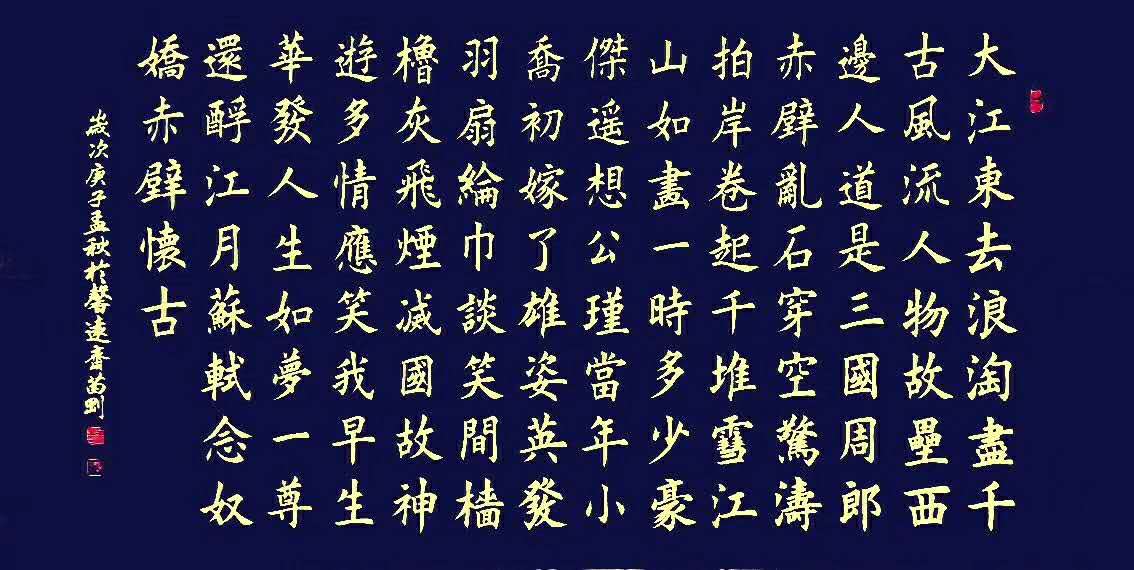 大江東去浪淘盡千
古風流人物故壘西
邊人道是三國周郎
赤壁亂石穿空驚濤
拍岸卷起千堆雪江
山如畫一時多少豪
傑遥想公瑾當年小
喬初嫁了雄姿英發
羽扇綸巾談笑間檣
櫓灰飛煙滅國故神
遊多情應笑我早生
華發人生如夢一尊
還酹江月蘇軾念奴
嬌赤壁懷古
歲次庚子孟秋於馨遠齋